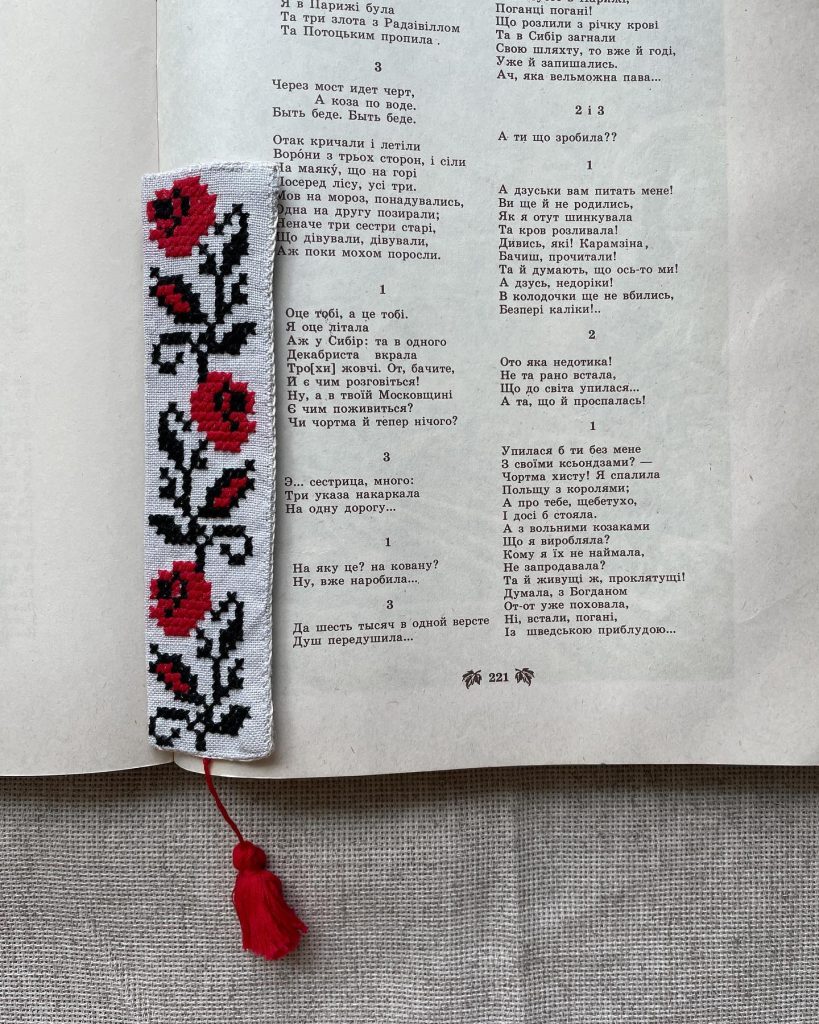 Я в Парижі була
Та три злота з Радзівіллом
Та Потоцьким пропила.
3
Через мост идет черт,
А коза по воде.
Быть беде. Быть беде.
Отак кричали і летіли
Воро́ни з трьох сторон, і сіли
На маяку́, що на горі
Посеред лісу, усі три.
Мов на мороз, понадувались,
Одна на другу позирали;
Неначе три сестри старі,
Що дівували, дівували,
Аж поки мохом поросли.
1
Оце тобі, а це тобі.
Я оце літала
Аж у Сибір: та в одного
Декабриста вкрала
Тро[хи] жовчі. От, бачите,
Й є чим розговіться!
Ну, а в твоїй Московщині
Є чим поживиться?
Чи чортма й тепер нічого?
3
Э... сестрица, много:
Три указа накаркала
На одну дорогу...
1
На яку це? на ковану?
Ну, вже наробила...
3
Да шесть тысяч в одной версте
Душ передушила...
Поганці погані!
Що розлили з річку крові
Та в Сибір загнали
Свою шляхту, то вже й годі,
Уже й запишались.
Ач, яка вельможна пава...
2 і 3
А ти що зробила??
1
А дзуськи вам питать мене!
Ви ще й не родились,
Як я отут шинкувала
Та кров розливала!
Дивись, які! Карамзіна,
Бачиш, прочитали!
Та й думають, що ось-то ми!
А дзусь, недоріки!
В колодочки ще не вбились,
Безпері каліки!..
2
Ото яка недотика!
Не та рано встала,
Що до світа упилася...
А та, що й проспалась!
1
Упилася б ти без мене
З своїми ксьондзами? —
Чортма хисту! Я спалила
Польщу з королями;
А про тебе, щебетухо,
І досі б стояла.
А з вольними козаками
Що я виробляла?
Кому я їх не наймала,
Не запродавала?
Та й живущі ж, проклятущі!
Думала, з Богданом
От-от уже поховала,
Ні, встали, погані,
Із шведською приблудою...
221